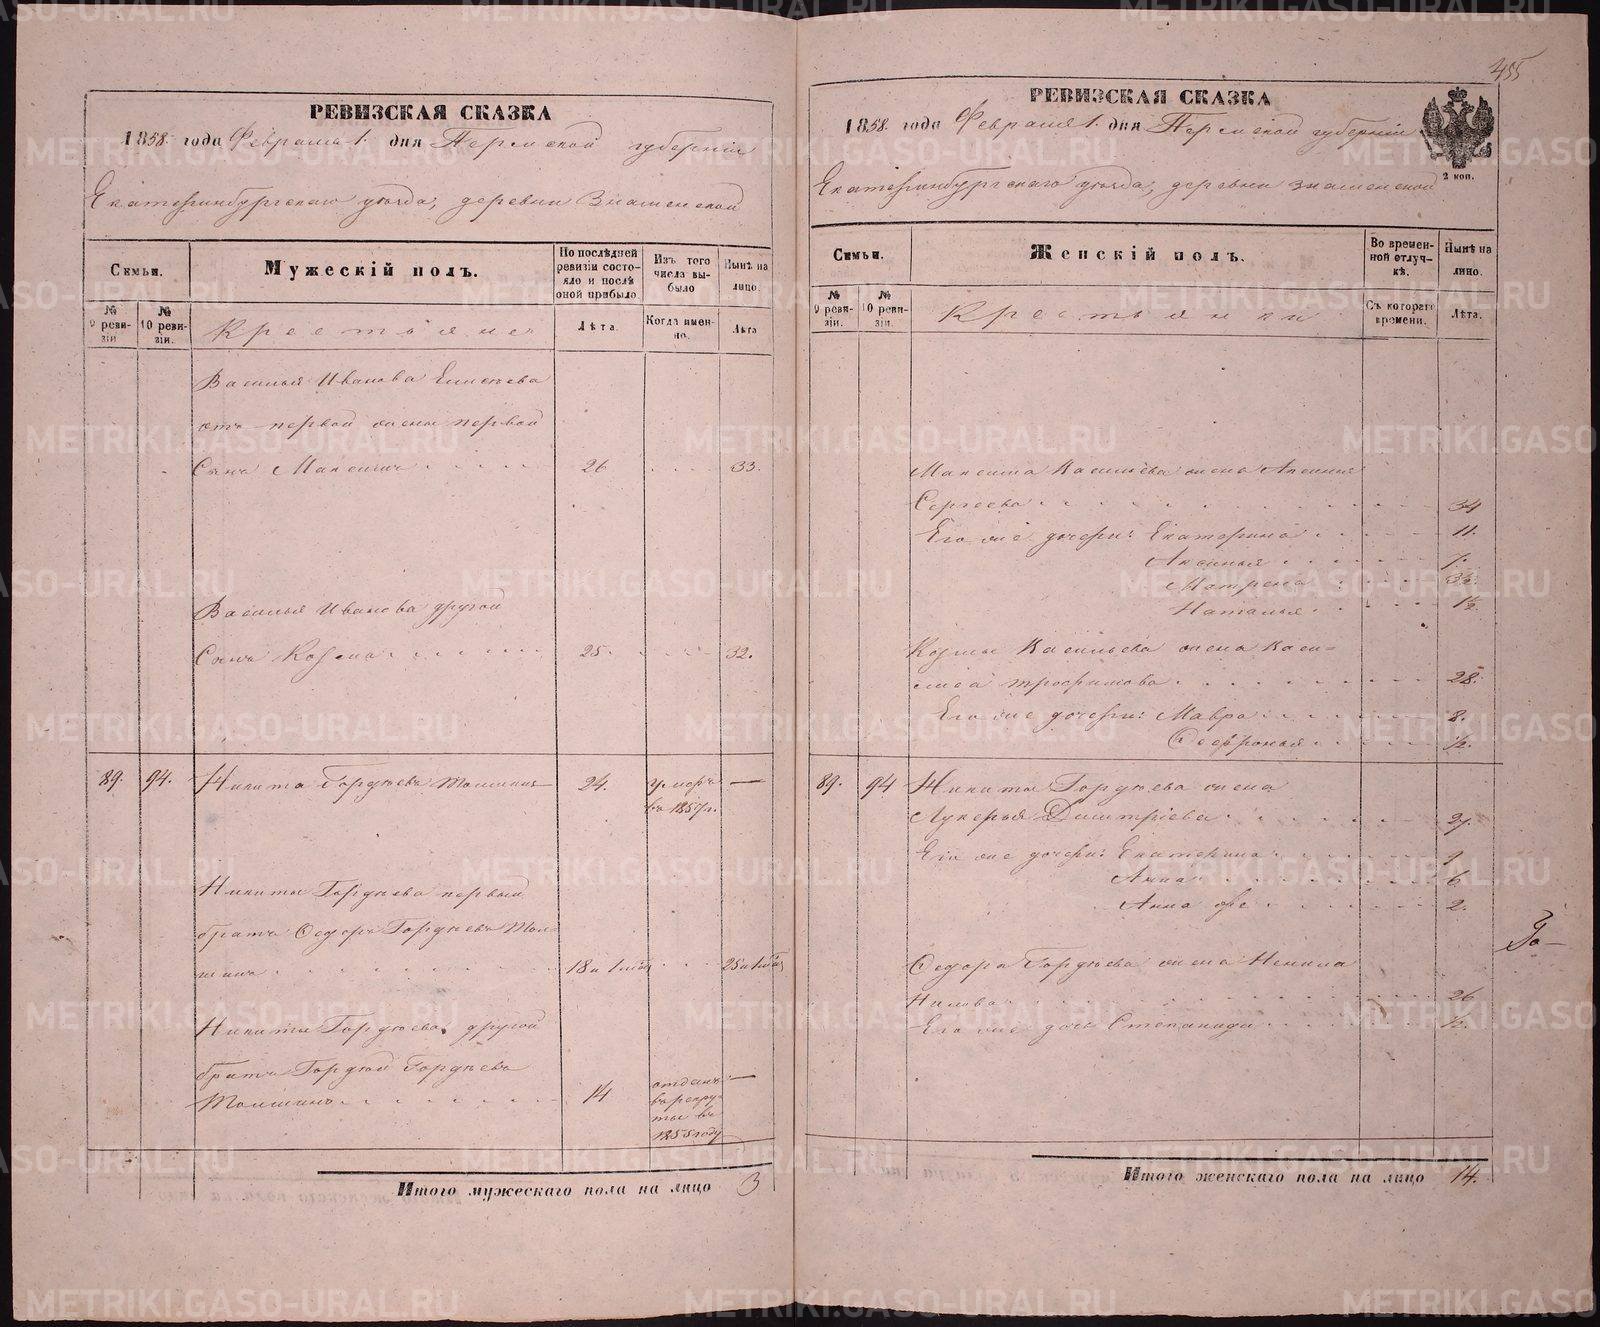 455
РЕВИЗСКАЯ СКАЗКА
1858. года Февраля 1. дня Пермской губерніи
Екатеринбургскаго уѣзда, деревни Знаменской
Семьи.
№ 9 ревизіи.
№ 10 ревизіи.
Мужескій полъ.
По послѣдней ревизіи состояло и послѣ оной прибыло
Изъ того числа выбыло
Нынѣ на лицо.
Крестьяне
Лѣта.
Когда именно.
Лѣта
Василья Иванова Елисѣева
отъ первой жены первой
Сынъ Максимъ 26 33.
Василья Иванова другой
Сынъ Козьма 25 32.
89. 94. Никита Гордѣевъ 24. умеръ —
въ 1857 г.
Никиты Гордѣева первый
братъ Ѳедоръ Гордѣевъ
18 и 1 мѣс 25 и 1 мѣс
Никиты Гордѣева другой
братъ Гордѣй Гордѣевъ
14 отданъ —
въ рекру-
ты въ
1855 году
Итого мужескаго пола на лицо 3
РЕВИЗСКАЯ СКАЗКА
1858. года Февраля 1. дня Пермской губерніи
2 коп.
Екатеринбургскаго уѣзда, деревни Знаменской
Семьи.
№ 9 ревизіи.
№ 10 ревизіи.
Женскій полъ.
Во временной отлучкѣ.
Нынѣ на лицо.
Крестьянки
Съ котораго времени.
Лѣта.
Максима Васильева жена Аксинья
Сергеева 34
Его же дочери: Екатерина 11.
Аксинья 7.
Матрена 3½
Наталья 1½
Козьмы Васильева жена Васи-
лиса Трофимова 28.
Его же дочери: Мавра 8.
Софронья ½.
89. 94 Никиты Гордѣева жена
Лукерья Дмитріева 27.
Его же дочери: Екатерина
Анна 6
Анна же 2.
Ѳедора Гордѣева жена Ненила
Нилова 26
Его же дочь Степанида ½.
Итого женскаго пола на лицо 14.
METRIKI.GASO-URAL.RU